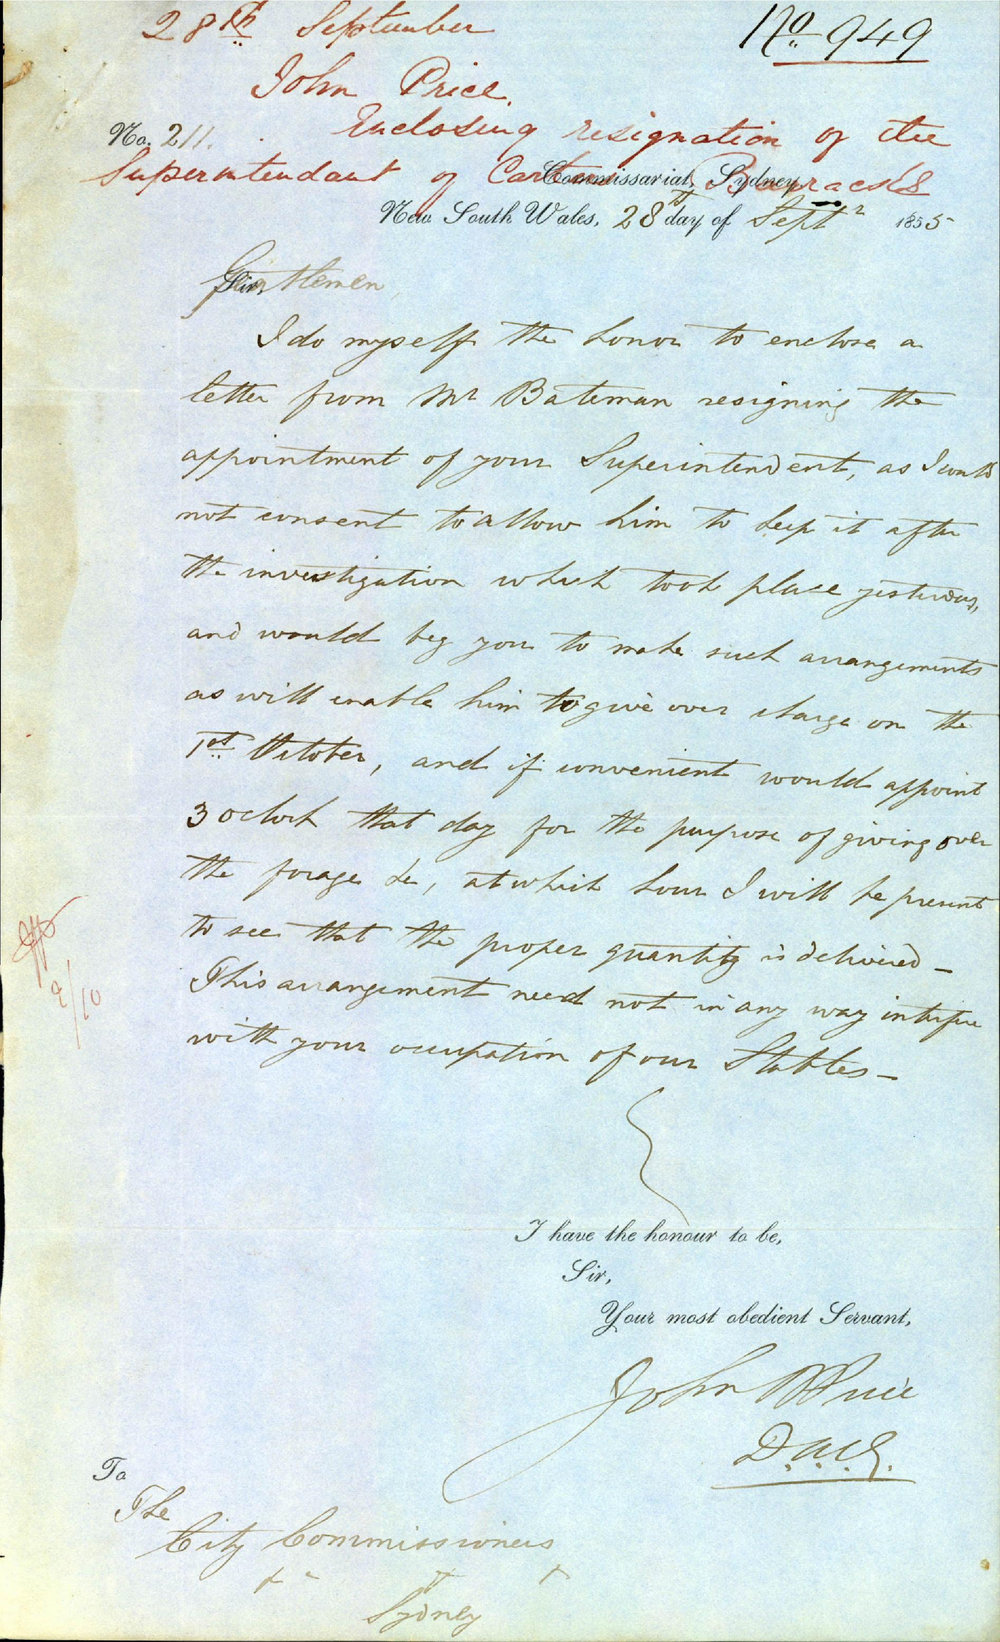 28th September
No 949
John Price.
Enclosing resignation of the
No. 211.
Superintendant of Carters Barracks
Commissariat, Sydney,
New South Wales, 28th day of Septr 1855
Gentlemen,
I do myself the honor to enclose a
letter from Mr Bateman resigning the
appointment of your Superintendent, as I could
not consent to allow him to keep it after
the investigation which took place yesterday,
and would beg you to make such arrangements
as will enable him to give over charge on the
1st October, and if convenient would appoint
3 oclock that day for the purpose of giving over
the forage &c, at which hour I will be present
to see that the proper quantity is delivered –
This arrangement need not in any way interfere
with your occupation of our Stables –
2/10
I have the honour to be,
Sir,
Your most obedient Servant,
John Price
D.A.C.G.
To
The
City Commissioners
Sydney